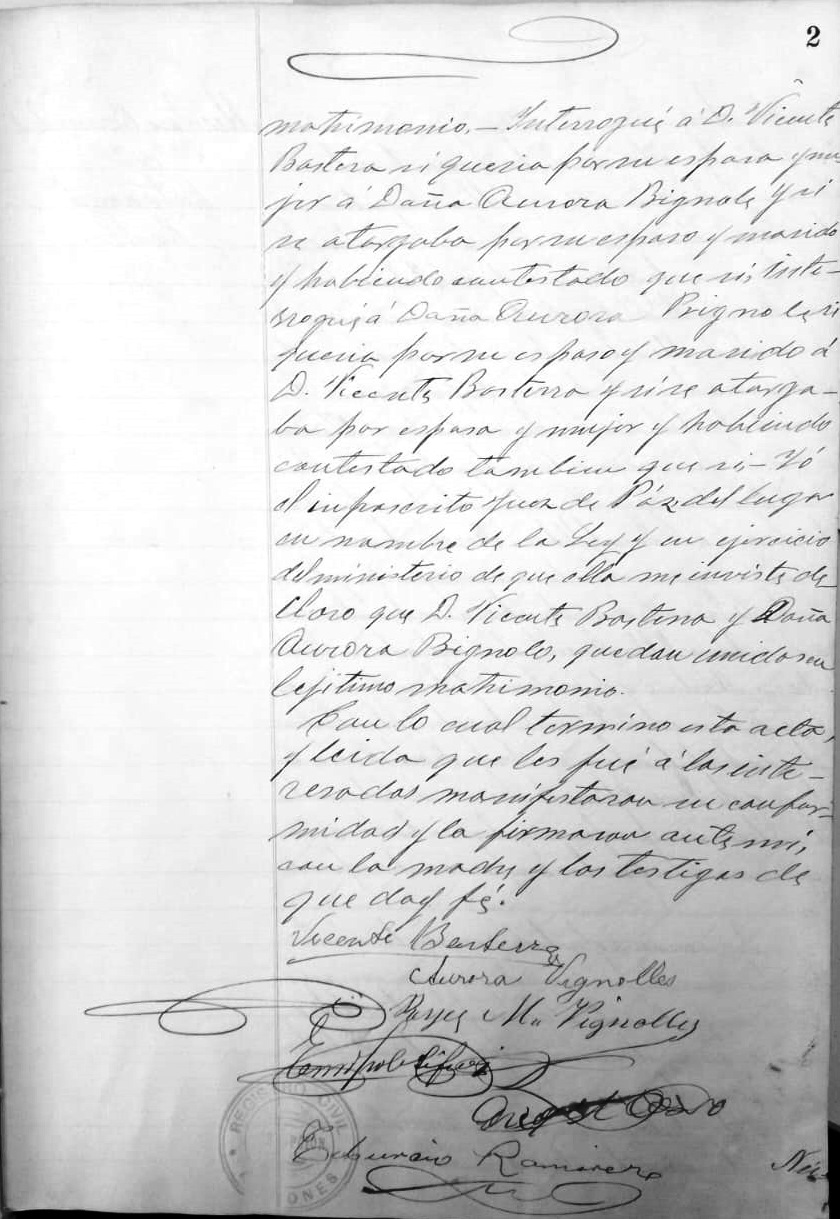 2
matrimonio.- Interrogué á D. Vicente
Bastera si queria por su esposa y mu
jer á Doña Aurora Bignole y si
se otorgaba por su esposo y marido
y habiendo contestado que si, Inte-
rrogué á Doña Aurora Bignole si
queria por su esposo y marido á
D. Vicente Basterra y si se otorga-
ba por esposa y mujer y habiendo
contestado tambien que si- Yó
el infrascrito Juez de Páz del lugar
en nombre de la Ley y en ejercicio
del ministerio de que ella me inviste de
claro que D. Vicente Basterra y Doña
Aurora Bignolo, quedan unidos en
lejitimo matrimonio.
Con lo cual termino esta acta,
y leida que les fué á los inte-
resados manifestaron su confor-
midad y la firmaron ante mi,
con la madre y los testigos de
que doy fé.
Vicente Basterra
Aurora Vignolles
Reyes Ma Vignolles
Tiburcio Ramirez
REGISTRO CIVIL